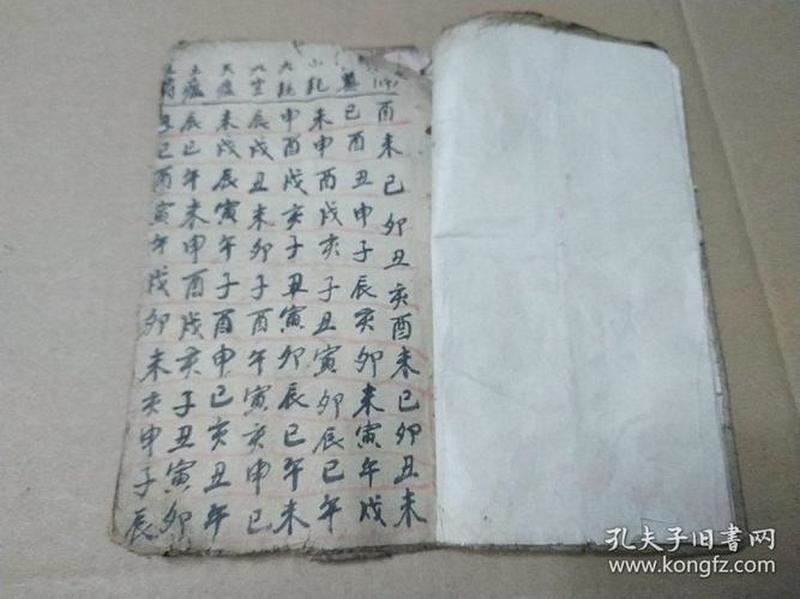 酉未巳卯丑亥酉未巳卯丑未
巳酉丑申子辰亥卯未寅午戌
小耗未申酉戌亥子丑寅卯辰巳午
大耗申酉戌亥子丑寅卯辰巳午未
辰戌丑未卯子酉午寅亥申巳
天瘟未戌辰寅午子酉申巳亥丑午
土瘟辰巳午未申酉戌亥子丑寅卯
丑巳酉寅午戌卯未亥申子辰
孔夫子旧书网
www.kongfz.com